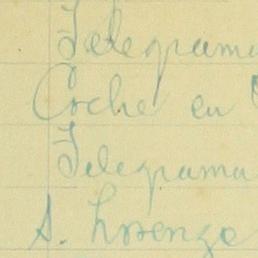 Telegrama
Coche en
Telegrama
S. Lorenzo